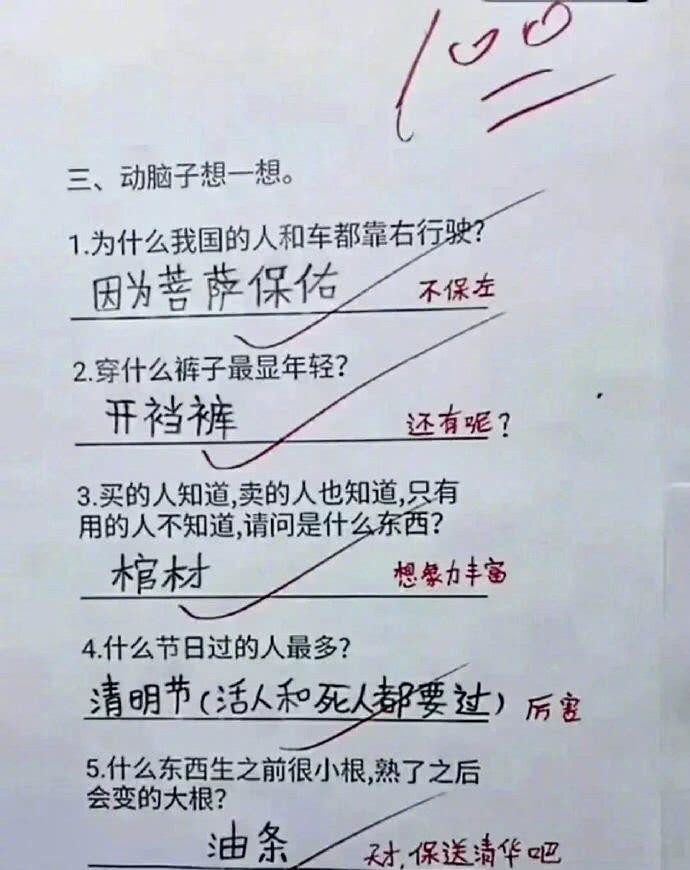 100
三、动脑子想一想。
1.为什么我国的人和车都靠右行驶?
因为菩萨保佑 不保左
2.穿什么裤子最显年轻?
开裆裤 还有呢?
3.买的人知道,卖的人也知道,只有
用的人不知道,请问是什么东西?
棺材 想象力丰富
4.什么节日过的人最多?
清明节(活人和死人都要过) 厉害
5.什么东西生之前很小根,熟了之后
会变的大根?
油条 天才,保送清华吧